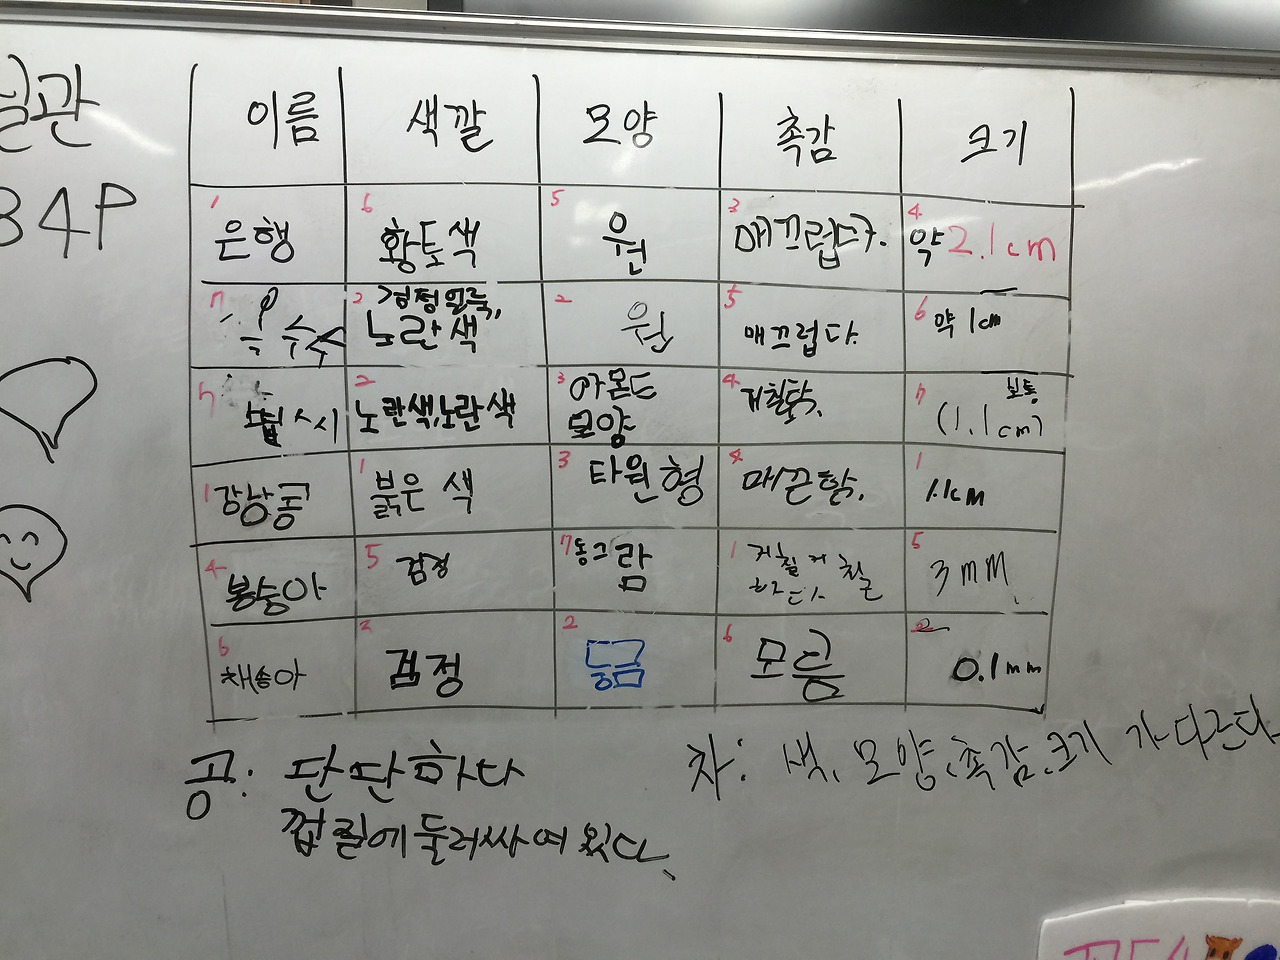 실관
34P
이름 색깔 모양 촉감 크기
1 은행 6 황토색 5 원 3 매끄럽다. 4 약 2.1cm
7 옥수수 2 검정얼룩, 노란색 2 원 5 매끄럽다. 6 약 1cm
2 노란색,노란색 3 아몬드 모양 4 7 보통 (1.1cm)
1 강낭콩 1 붉은 색 3 타원형 4 매끈함. 1 1.1cm
4 봉숭아 5 검정 7 동그람 1 거칠거칠 하다 5 3mm
6 채송아 2 검정 2 동금 6 모름 2 0.1mm
공: 단단하다
껍질에 둘러싸여 있다.
차: 색, 모양, 촉감, 크기 가 다르다